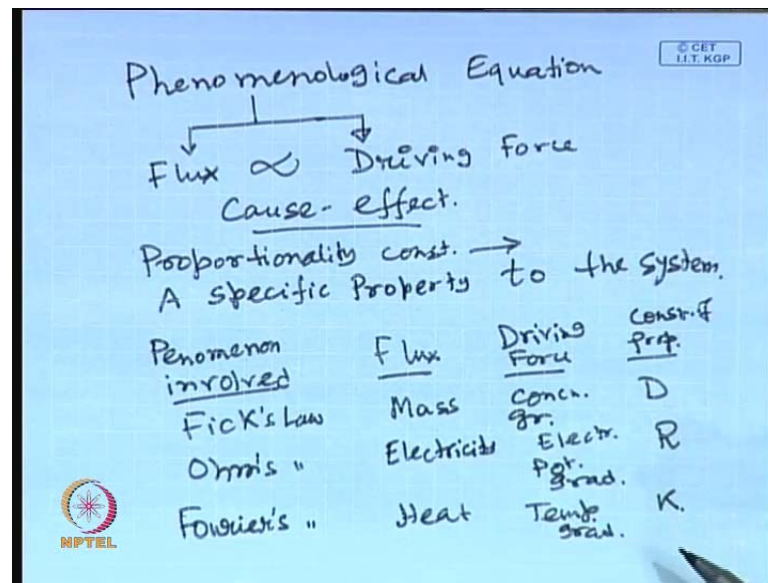 © CET
I.I.T. KGP
Phenomenological Equation
Flux ∝ Driving Force
Cause - effect.
Proportionality const. →
A specific Property to the system.
Penomenon involved Flux Driving Force Const. of Prop.
Fick's Law Mass Concn. gr. D
Ohm's " Electricity Electr. Pot. grad. R
Fourier's " Heat Temp. grad. K.
NPTEL